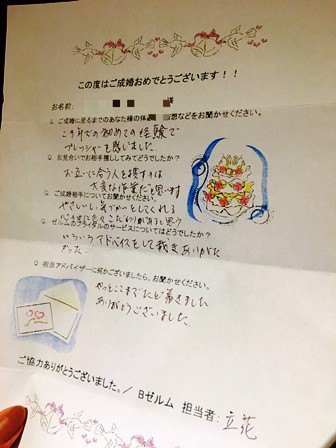 この度はご成婚おめでとうございます!!
お名前: 様
Q ご成婚に至るまでのあなた様の体 想などをお聞かせください。
この年での初めての経験で
プレッシャーを感じました。
Q お見合いでお相手捜ししてみてどうでしたか?
お互いに合う人を捜すのは
大変な作業だと思います
Q ご成婚相手についてお聞かせください。
やさしいし気づかってくれる
Q ゼルムのブライダルのサービスについてはどうでしたか?
いろいろアドバイスをして戴きありがた
かった.
Q 担当アドバイザーに何かございましたら、お聞かせください。
やっとここまでたどり着きました
ありがとうございました。
ご協力ありがとうございました。/ Bゼルム 担当者: 立花